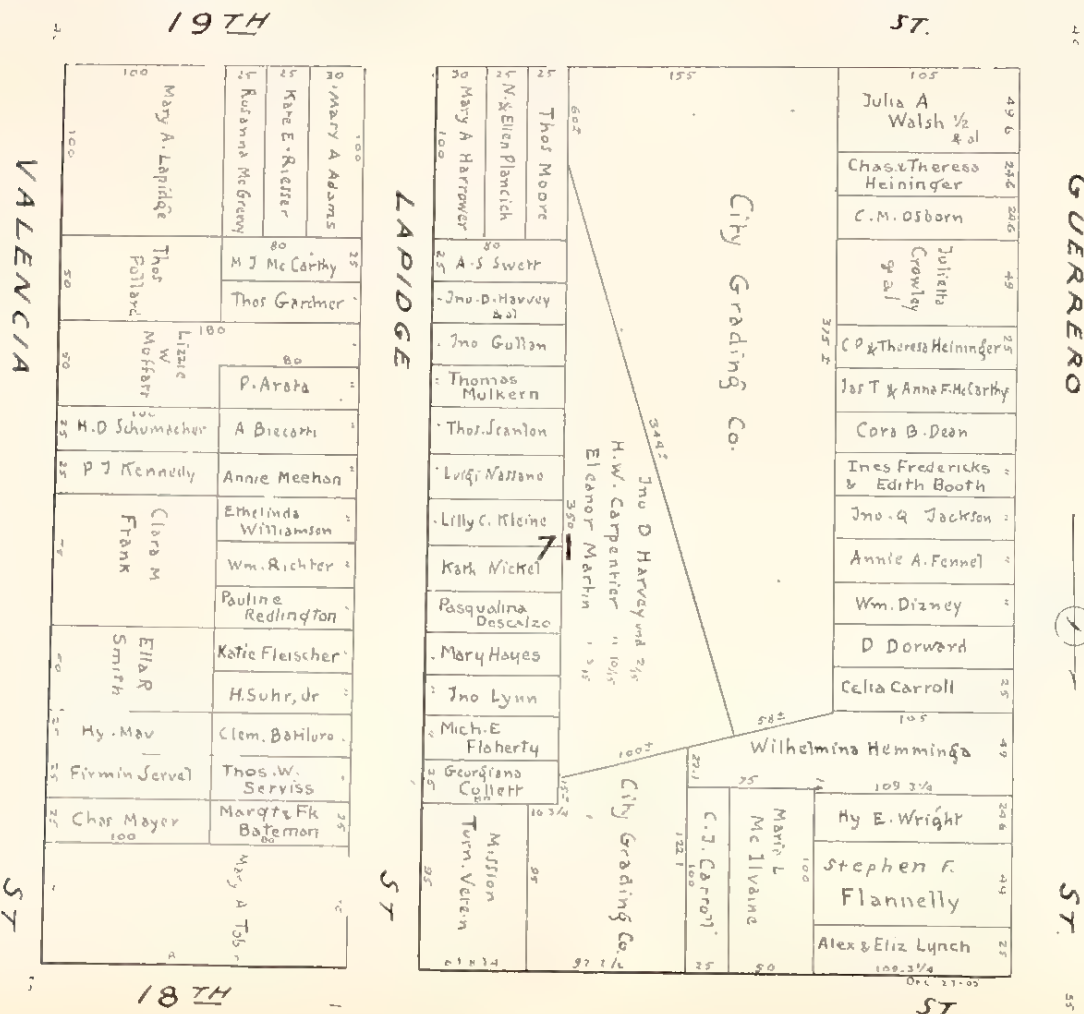 19TH
ST.
VALENCIA
ST
LAPIDGE
ST
GUERRERO
ST.
18TH
ST
100
Mary A. Lapidge
100
25
Rosanna McGreevy
25
Kate E. Riesser
30
Mary A Adams
100
Thos Pollard
50
80
M J McCarthy
25
Thos Gardner
180
Lizzie W Moffatt
50
80
P. Arata
H.D Schumacher
25
P J Kennedy
25
Annie Meehan
Clara M Frank
Ethelinda Williamson
Wm. Richter
Pauline Redlington
Ella R Smith
Katie Fleischer
H. Suhr, Jr
Hy. May
Firmin Servel
25
Thos. W. Serviss
Chas Mayer
25
100
Margt & Fk Bateman
25
80
30
Mary A Harrower
100
25
N. & Ellen Plancich
25
Thos Moore
60±
80
25
A. S Swett
Jno. D. Harvey & al
Jno Gullan
Thomas Mulkern
Thos. Scanlon
Luigi Nassano
Lilly C. Kleine
7
Kath Nickel
Pasqualina Descalzo
Mary Hayes
Jno Lynn
Mich. E Flaherty
25
Georgiana Collett
80
Mission Turn. Verein
95
155
City Grading Co.
344±
350±
375±
Jno D Harvey und 2/15
H.W. Carpentier " 10/15
Eleanor Martin " 3/15
100±
58±
15±
10 3/4
95
City Grading Co.
97 1/2
122.1
27.1
C. J. Carroll
100
25
75
Marie L McIlvaine
100
50
105
Julia A Walsh 1/2 & al
49 6
Chas. & Theresa Heininger
24 6
C. M. Osborn
24 6
Julietta Crowley & al
49
C P & Theresa Heininger
25
Jas T & Anna F. McCarthy
Cora B. Dean
Ines Fredericks & Edith Booth
Jno. Q Jackson
Annie A. Fennel
Wm. Dizney
D Dorward
Celia Carroll
25
105
Wilhelmina Hemminga
49
109 3 1/4
Hy E. Wright
24 6
Stephen F. Flannelly
49
Alex & Eliz Lynch
25
109.3 1/4